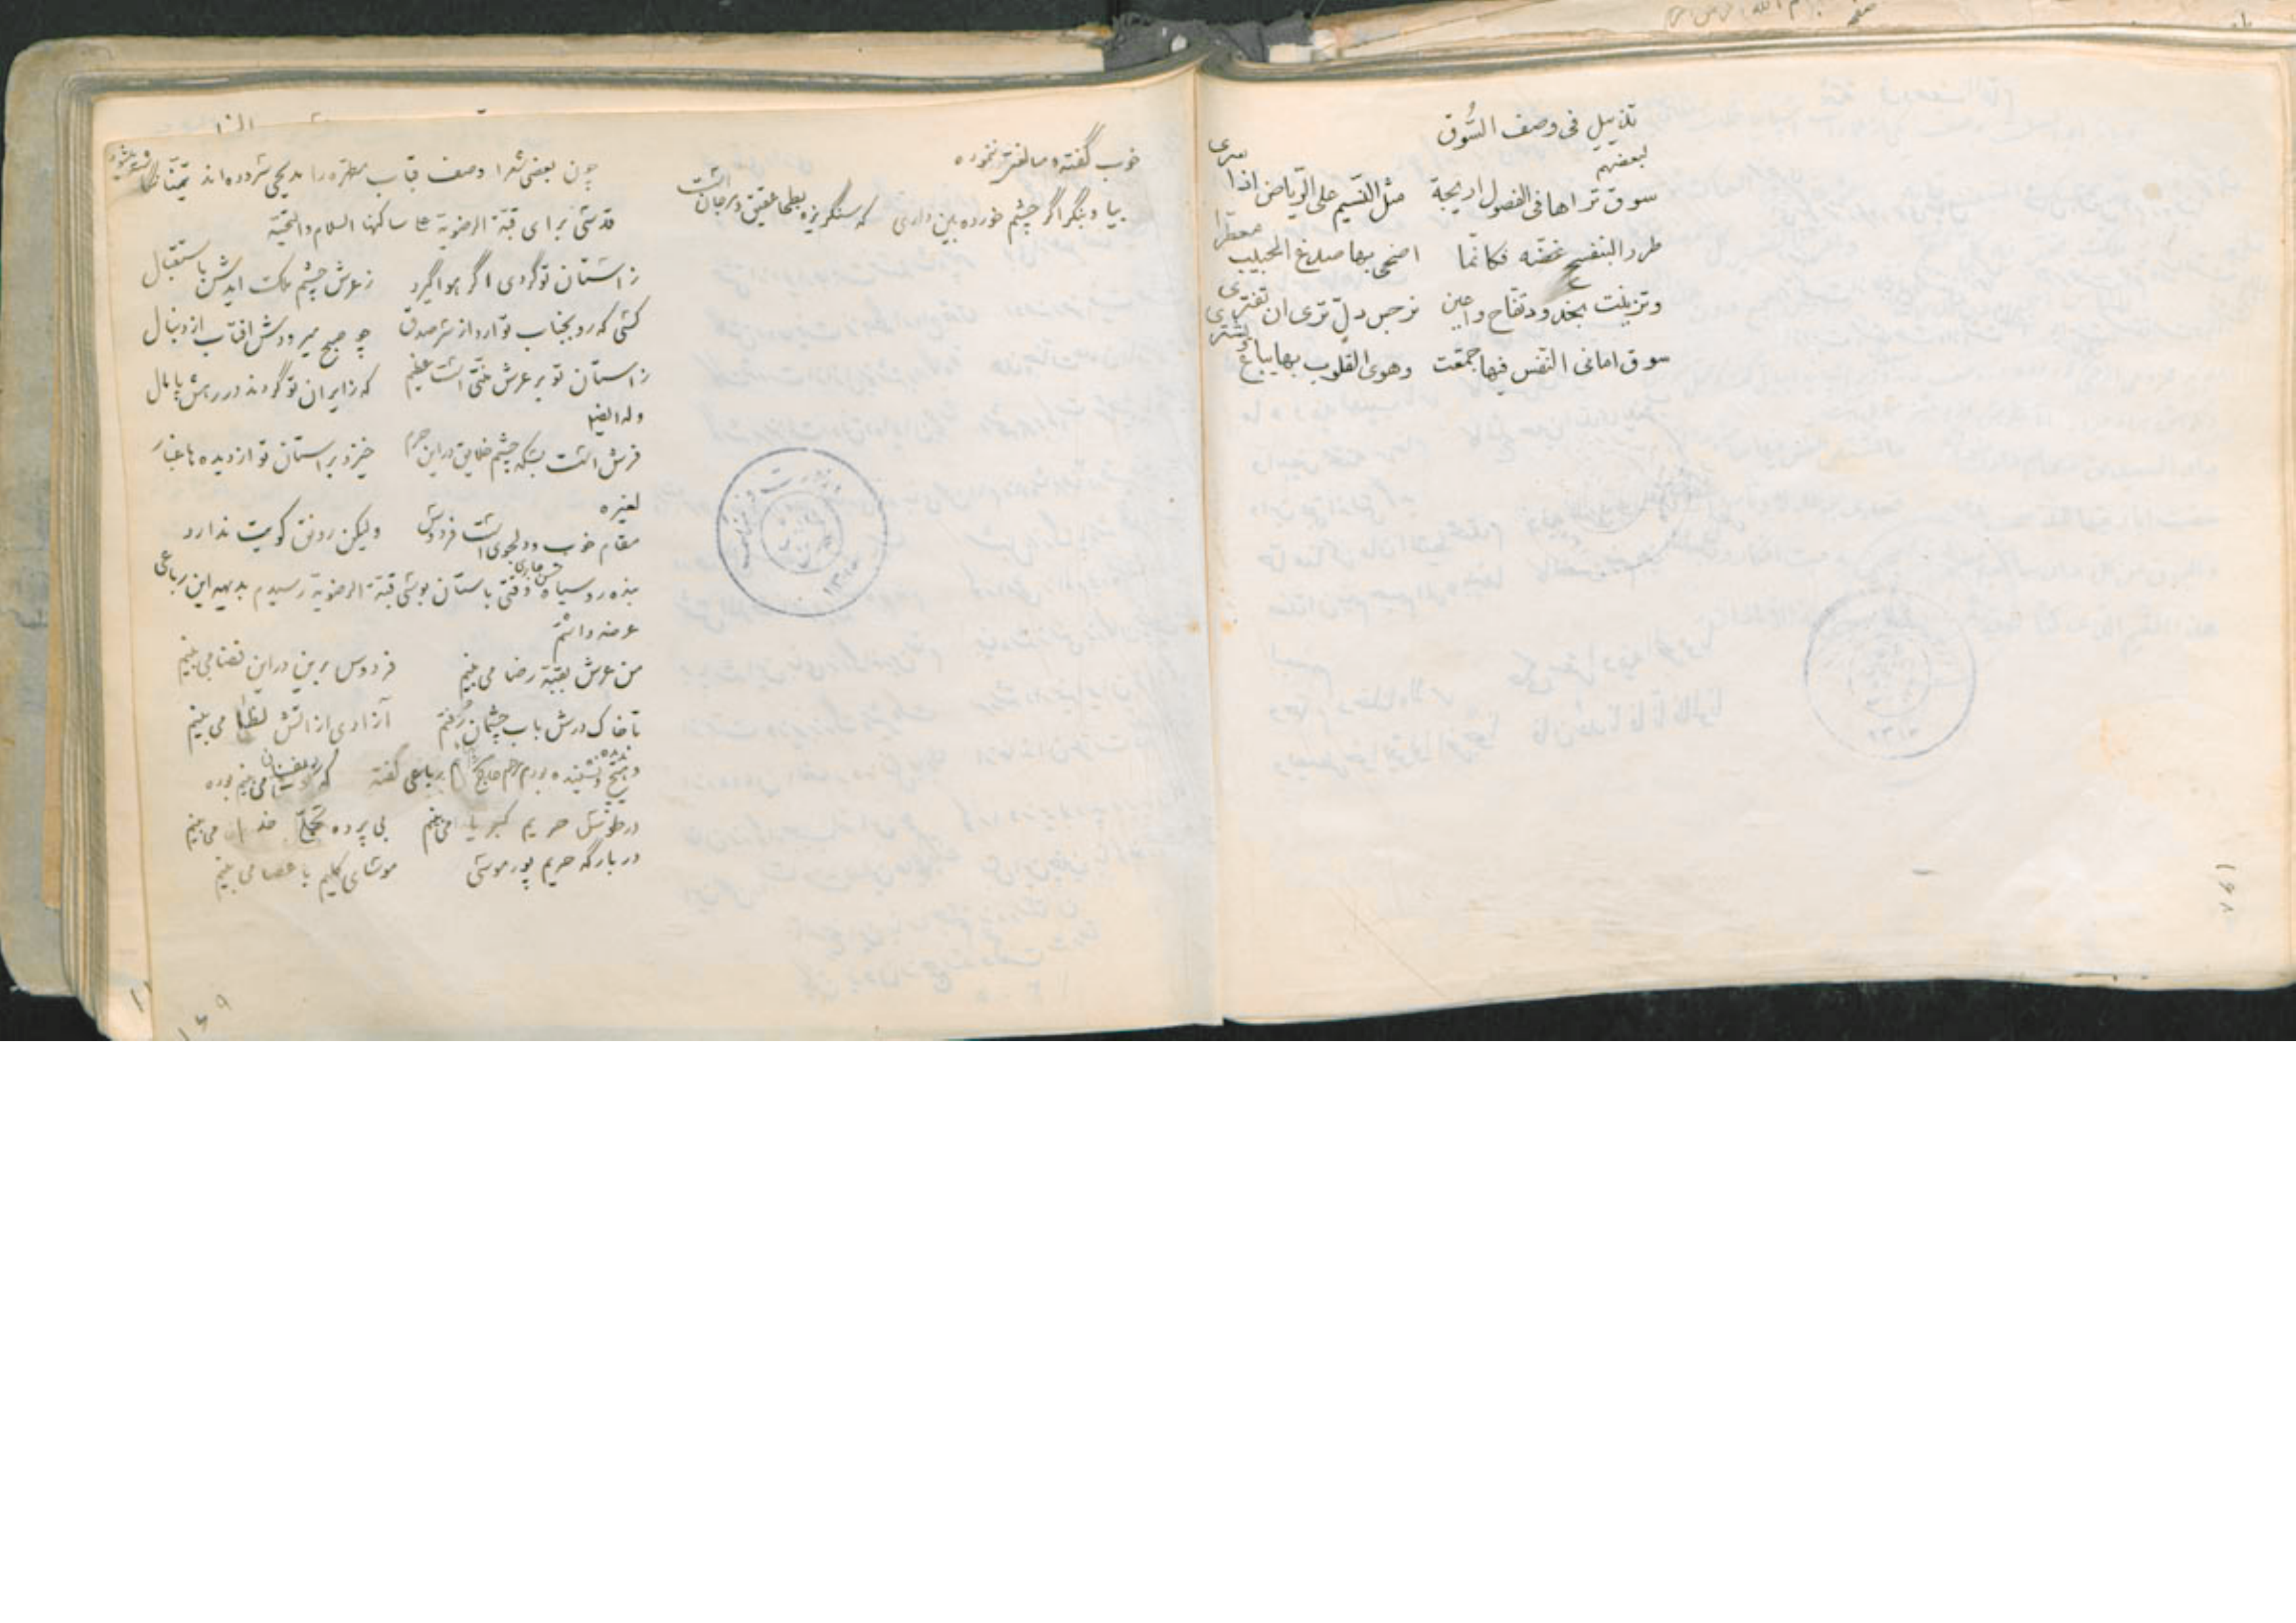 تذييل فى وصف السُّوق
لبعضهم
سوق تراها فى الفصول اريجة مثل النّسيم على الرّياض اذا سرى
طرد البنفسج غضّه فكانّما اضحى بها صدغ الحبيب معطرا
وتزينت بخدود تفاح واعين نرجس دلّ ترى ان تفترى
سوق امانى النّفس فيها جمعّت وهوى القلوب بها يباع ويشترى
١٤٨
خوب گفته و مبالغه ننموده
بیا و بنگر اگر چشم خورده بین داری که سنگریزه بطحا عقیق و مرجان است
چون بعضی شعرا وصف قباب مطهره را مدیحی شمرده اند تیمنّا
قدسی برای قبّة الرضویة علی ساکنها السلام والتحیّة
ز آستان تو گردی اگر هوا گیرد ز عرش چشم ملک آیدش باستقبال
کسی که رو بجناب تو آرد از سر صدق چو صبح میرودش آفتاب از دنبال
ز آستان تو بر عرش منّتی است عظیم که زایران تو گردند در رهش پامال
وله ایضا
فرش است بسکه چشم خلایق در این حرم خیزد بر آستان تو از دیده ها غبار
لغیره
مقام خوب و دلجوی است فردوس ولیکن رونق کویت ندارد
بنده رو سیاه وقتی باستان بوسی قبّة الرضویة رسیدم بدیهه این رباعی
عرضه داشتم
من عرش بقبّة رضا می بینم فردوس برین در این فضا می بینم
تا خاک درش باب چشمان رُفتم آزادی از آتش لظا می بینم
در طوس حریم کبریا می بینم بی پرده تجلّی خدا می بینم
در بارگه حریم پور موسی موسای کلیم با عصا می بینم
١٤٩